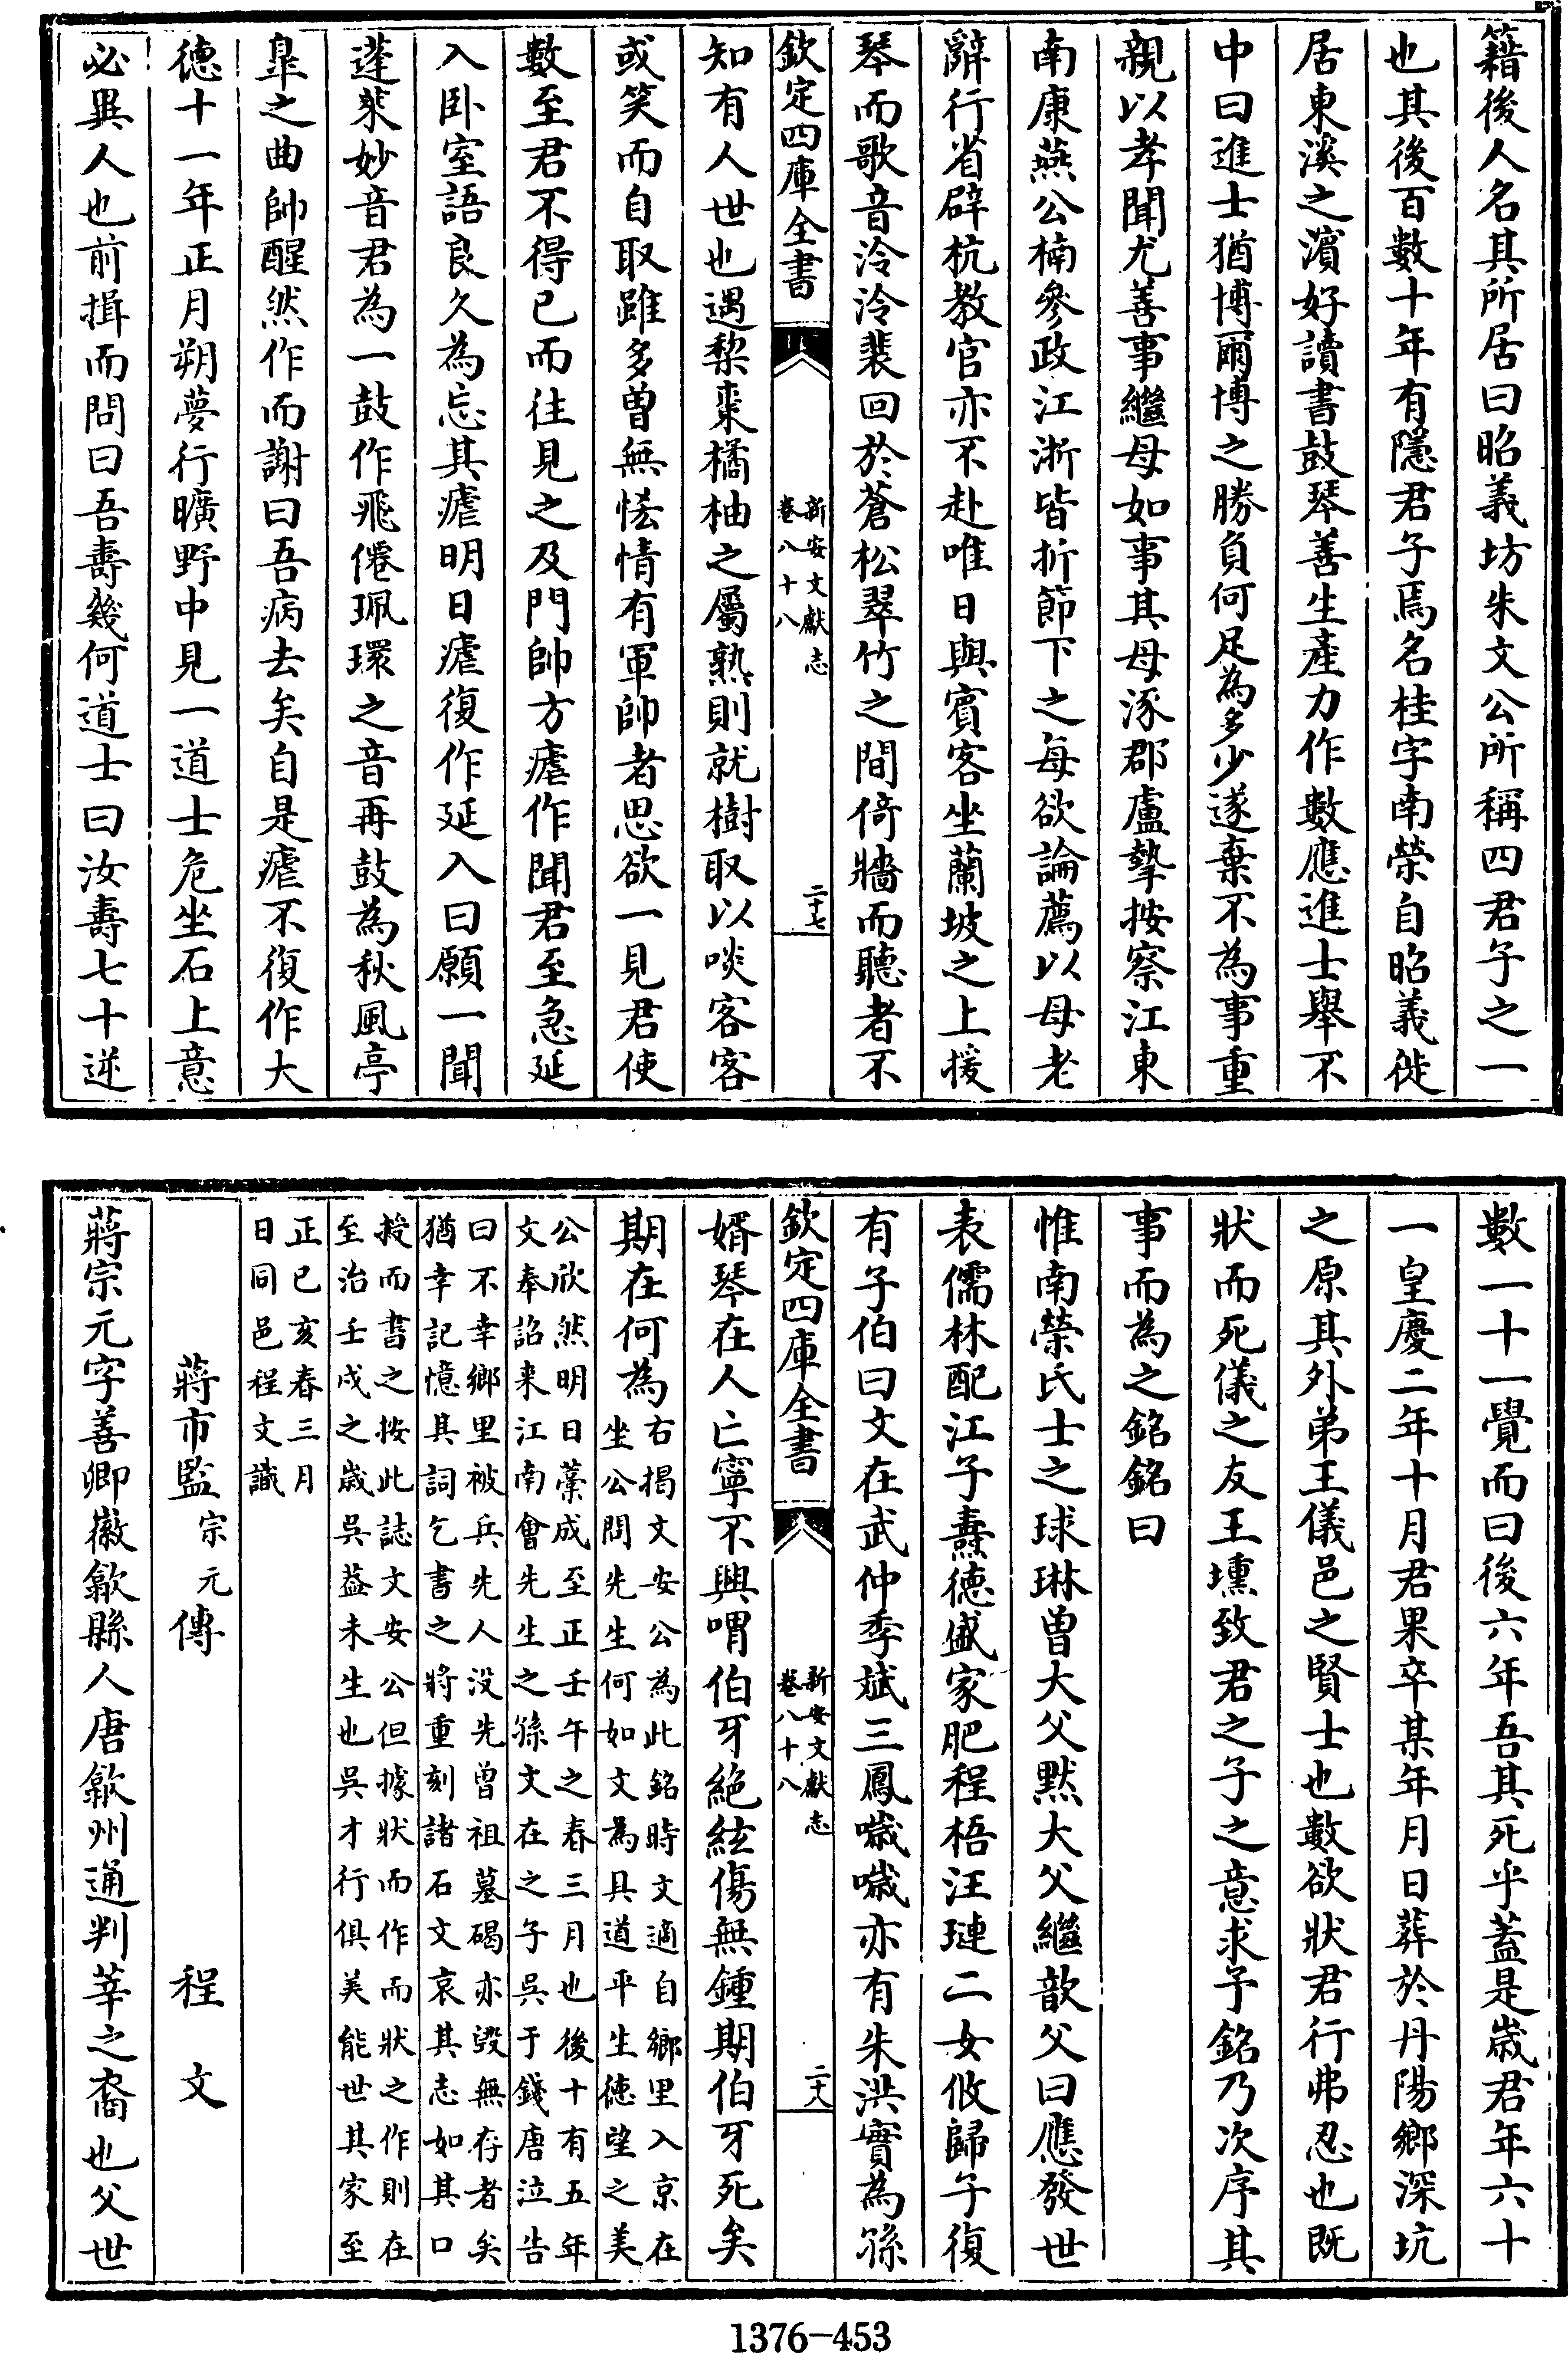 籍後人名其所居曰昭義坊朱文公所稱四君子之一
也其後百數十年有隱君子焉名桂字南榮自昭義徙
居東溪之濵好讀書鼓琴善生產力作數應進士舉不
中曰進士猶博爾博之勝負何足為多少遂棄不為事重
親以孝聞尤善事繼母如事其母涿郡盧摯按察江東
南康燕公楠參政江浙皆折節下之每欲論薦以母老
辭行省辟杭教官亦不赴唯日與賓客坐蘭坡之上援
琴而歌音泠泠裴回於蒼松翠竹之間倚牆而聽者不
欽定四庫全書
新安文獻志
卷八十八
二十七
知有人世也遇棃棗橘柚之屬熟則就樹取以啖客客
或笑而自取雖多曽無恡情有軍帥者思欲一見君使
數至君不得已而往見之及門帥方瘧作聞君至急延
入卧室語良久為忘其瘧明日瘧復作延入曰願一聞
蓬萊妙音君為一鼓作飛僊珮環之音再鼓為秋風亭
臯之曲帥醒然作而謝曰吾病去矣自是瘧不復作大
德十一年正月朔夢行曠野中見一道士危坐石上意
必異人也前揖而問曰吾壽幾何道士曰汝壽七十逆
數一十一覺而曰後六年吾其死乎蓋是歲君年六十
一皇慶二年十月君果卒某年月日葬於丹陽鄉深坑
之原其外弟王儀邑之賢士也數欲狀君行弗忍也既
狀而死儀之友王壎致君之子之意求予銘乃次序其
事而為之銘銘曰
惟南榮氏士之球琳曽大父黙大父繼歆父曰應發世
表儒林配江子燾徳盛家肥程梧汪璉二女攸歸子復
有子伯曰文在武仲季斌三鳳噦噦亦有朱洪實為孫
欽定四庫全書
新安文獻志
卷八十八
二十八
婿琴在人亡寧不興喟伯牙絶絃傷無鍾期伯牙死矣
期在何為
右揭文安公為此銘時文適自鄉里入京在
坐公問先生何如文為具道平生徳望之美
公欣然明日藁成至正壬午之春三月也後十有五年
文奉詔来江南會先生之孫文在之子吳于錢唐泣告
曰不幸鄉里被兵先人没先曾祖墓碣亦毀無存者矣
猶幸記憶其詞乞書之將重刻諸石文哀其志如其口
授而書之按此誌文安公但據狀而作而狀之作則在
至治壬戌之歲吳葢未生也吳才行俱美能世其家至
正已亥春三月
日同邑程文識
蔣市監宗元傳
程文
蔣宗元字善卿徽歙縣人唐歙州通判莘之裔也父世
1376-453